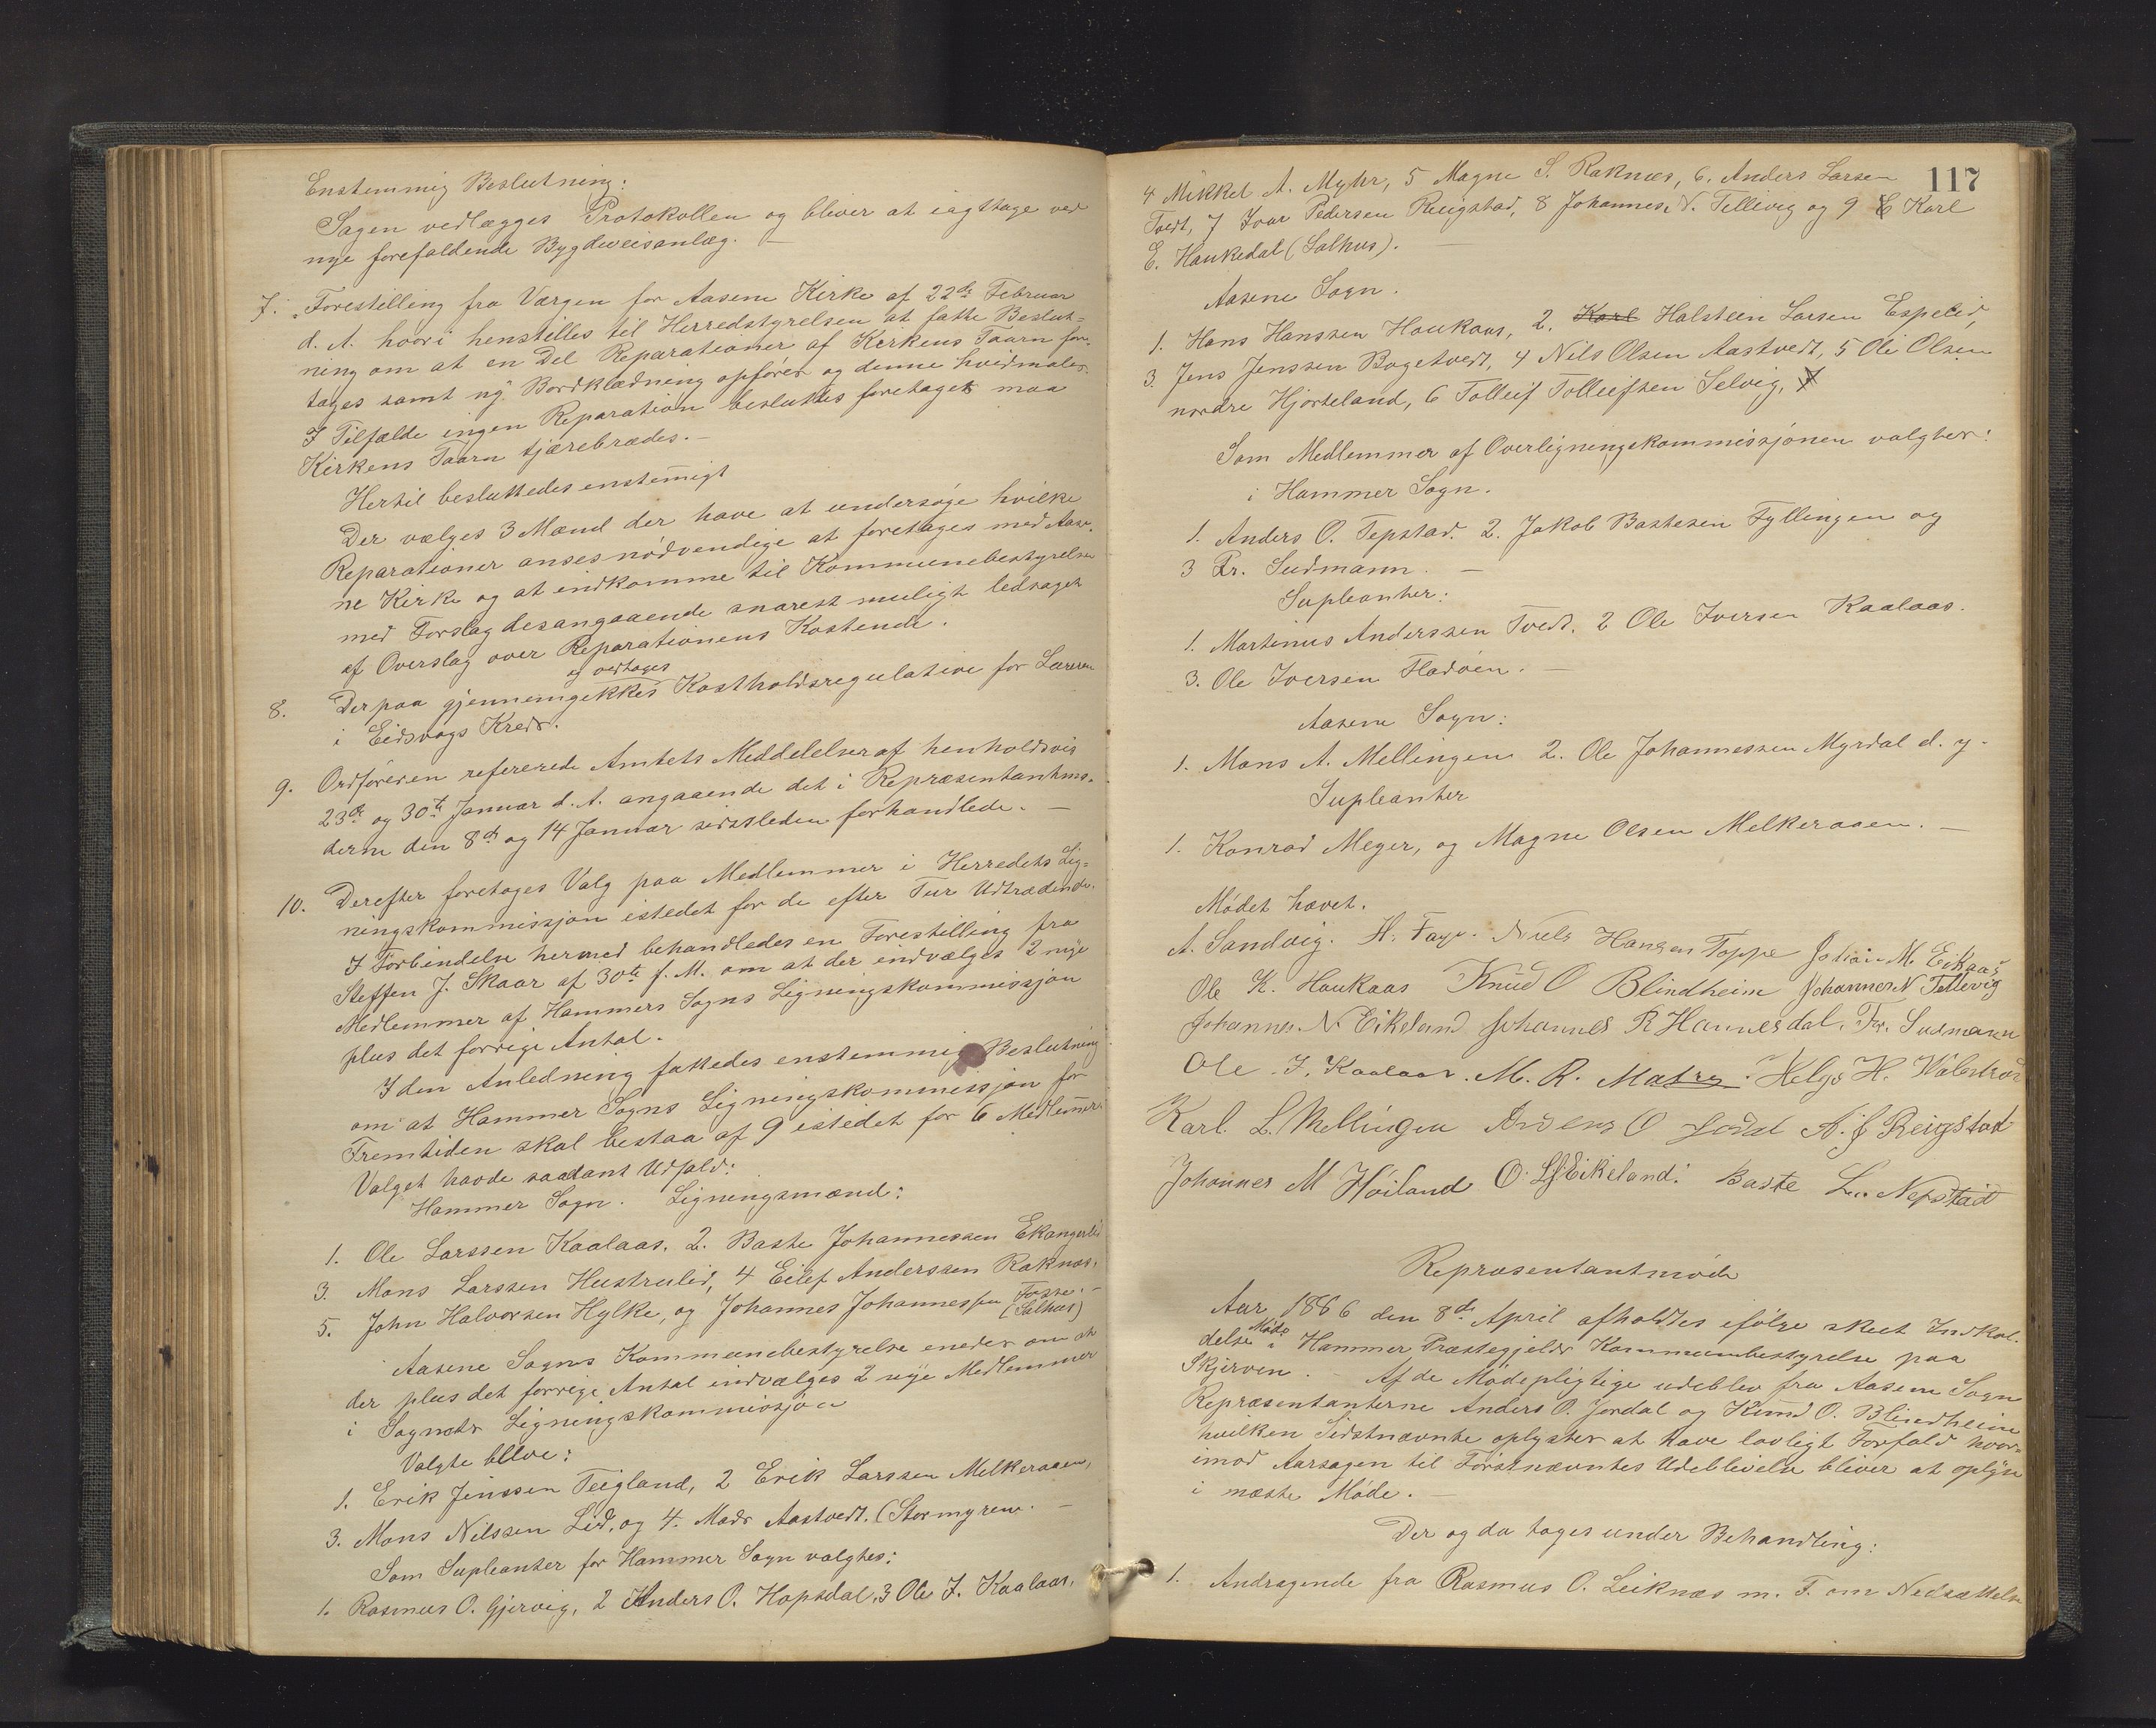 Enstemmig Beslutning:
Sagen vedlægges Protokollen og bliver at iagttage ved
nye forefaldende Bygdeveisanlæg. —
7. Forestilling fra Værgen for Aasene Kirke af 22de Februar
d. A. hvori henstilles til Herredstyrelsen at fatte Beslut=
ning om at en Del Reparationer af Kirkens Taarn fore-
tages samt ny Bordklædning opføres og denne hvidmales.
I Tilfælde ingen Reparation besluttes foretaget maa
Kirkens Taarn tjærebrædes. —
Hertil besluttedes enstemigt
Der vælges 3 Mænd der have at undersøge hvilke
Reparationer anses nødvendige at foretages med Aase-
ne Kirke og at indkomme til Kommunebestyrelsen
med Forslag desangaaende snarest muligt ledsaget
af Overslag over Reparationens Kostende.
og vedtages
8. Derpaa gjennemgikkes Kostholdsregulative for Læreren
i Eidsvags Kreds.
9. Ordføreren refererede Amtets Meddelelser af henholdsvis
23de og 30te Januar d. A. angaaende det i Repræsentantmø-
derne den 8de og 14 Januar sidstleden forhandlede. —
10. Derefter foretages Valg paa Medlemmer i Herredets Lig=
ningskommissjon istedet for de efter Tur Udtrædende.
I Forbindelse hermed behandledes en Forestilling fra
Steffen J. Skaar af 30te f. M. om at der indvælges 2 nye
Medlemmer af Hammers Sogns Ligningskommissjon
plus det forrige Antal.
I den Anledning fattedes enstemmig Beslutning
om at Hammer Sogns Ligningskommissjon for
Fremtiden skal bestaa af 9 istedet for 6 Medlemmer.
Valget havde saadant Udfald:
Hammer Sogn. Ligningsmænd:
1. Ole Larssen Kaalaas, 2. Baste Johannessen Ekangerlid
3. Mons Larssen Hustrulid, 4 Eilef Anderssen Raknæs,
5. John Halvorsen Hylke, og Johannes Johannessen Tosse. —
(Salhus)
Aasene Sogns Kommunebestyrelse enedes om at
der plus det forrige Antal indvælges 2 nye Medlemmer
i Sognets Ligningskommissjon
Valgte bleve:
1. Erik Jenssen Teigland, 2 Erik Larssen Melkeraaen,
3. Mons Nilssen Lid, og 4. Mads Aastvedt. (Stormyren. —
Som Supleanter for Hammer Sogn valgtes:
1. Rasmus O. Gjervig, 2 Anders O. Hopsdal, 3 Ole I. Kaalaas,
117
4 Mikkel A. Myhr, 5 Magne S. Raknæs, 6. Anders Larsen
Tvedt, 7 Ivar Pedersen Reigstad, 8 Johannes N. Tellevig og 9 Karl
E. Haukedal (Salhus). —
Aasene Sogn.
1. Hans Hanssen Haukaas, 2. Karl Halstein Larsen Espelid,
3. Jens Jenssen Bogetvedt, 4 Nils Olsen Aastvedt, 5 Ole Olsen
nordre Hjorteland, 6 Tolleif Tolleifsen Selvig,
Som Medlemmer af Overligningskommissjonen valgtes:
i Hammer Sogn.
1. Anders O. Tepstad. 2. Jakob Bastesen Fyllingen og
3 Fr. Sudmann. —
Supleanter:
1. Martinus Anderssen Tvedt. 2 Ole Iversen Kaalaas.
3. Ole Iversen Fladøen. —
Aasene Sogn:
1. Mons A. Mellingen 2. Ole Johannessen Myrdal d. y.
Supleanter
1. Konrad Meyer, og Magne Olsen Melkeraaen. —
Mødet hævet.
A. Sandvig. H. Faye. Niels Hansen Toppe Johan M. Eikaas
Ole K. Haukaas Knud O Blindheim Johannes N Tellevig
Johannes N. Eikeland Johannes R Hannesdal. Fr. Sudmann
Ole I. Kaalaas. M. R. Matre. Helge H. Valestrad
Karl L. Mellingen Anders O Jordal A. J Reigstad
Johannes M Høiland O. L Eikeland. Baste L. Nepstad
Repræsentantmøde
Aar 1886 den 8de April afholdtes ifølge skeet Indkal-
delse Møde Hammer Præstegjelds Kommunebestyrelse paa
Skjerven. — Af de Mødepligtige udeblev fra Aasene Sogn
Repræsentanterne Anders O. Jordal og Knud O. Blindheim
hvilken Sidstnævnte oplystes at have lovligt Forfald hvor=
imod Aarsagen til Førstnævntes Udeblivelse bliver at oplyse
i næste Møde. —
Der og da toges under Behandling:
1. Andragende fra Rasmus O. Leiknæs m. F. om Nedsættelse